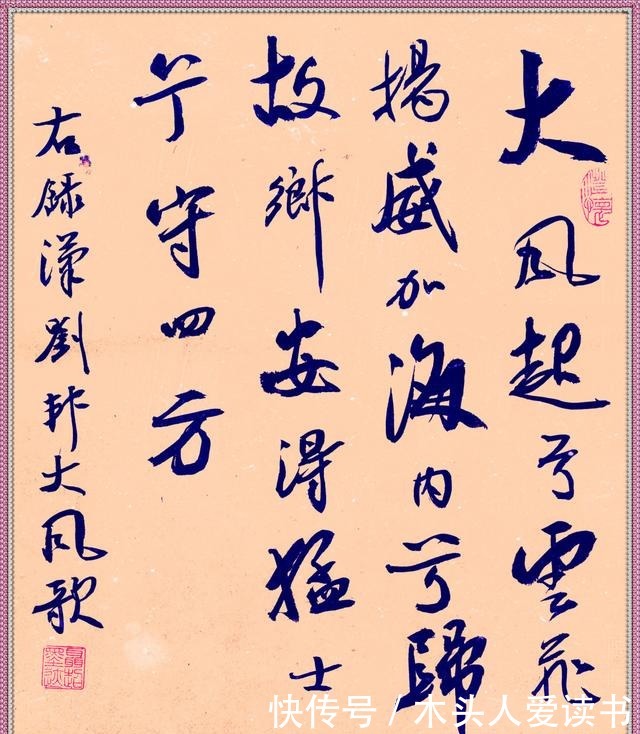 大风起兮雲飛
揚威加海内兮歸
故鄉安得猛士
兮守四方
右録漢劉邦大风歌
快传号/木头人爱读书